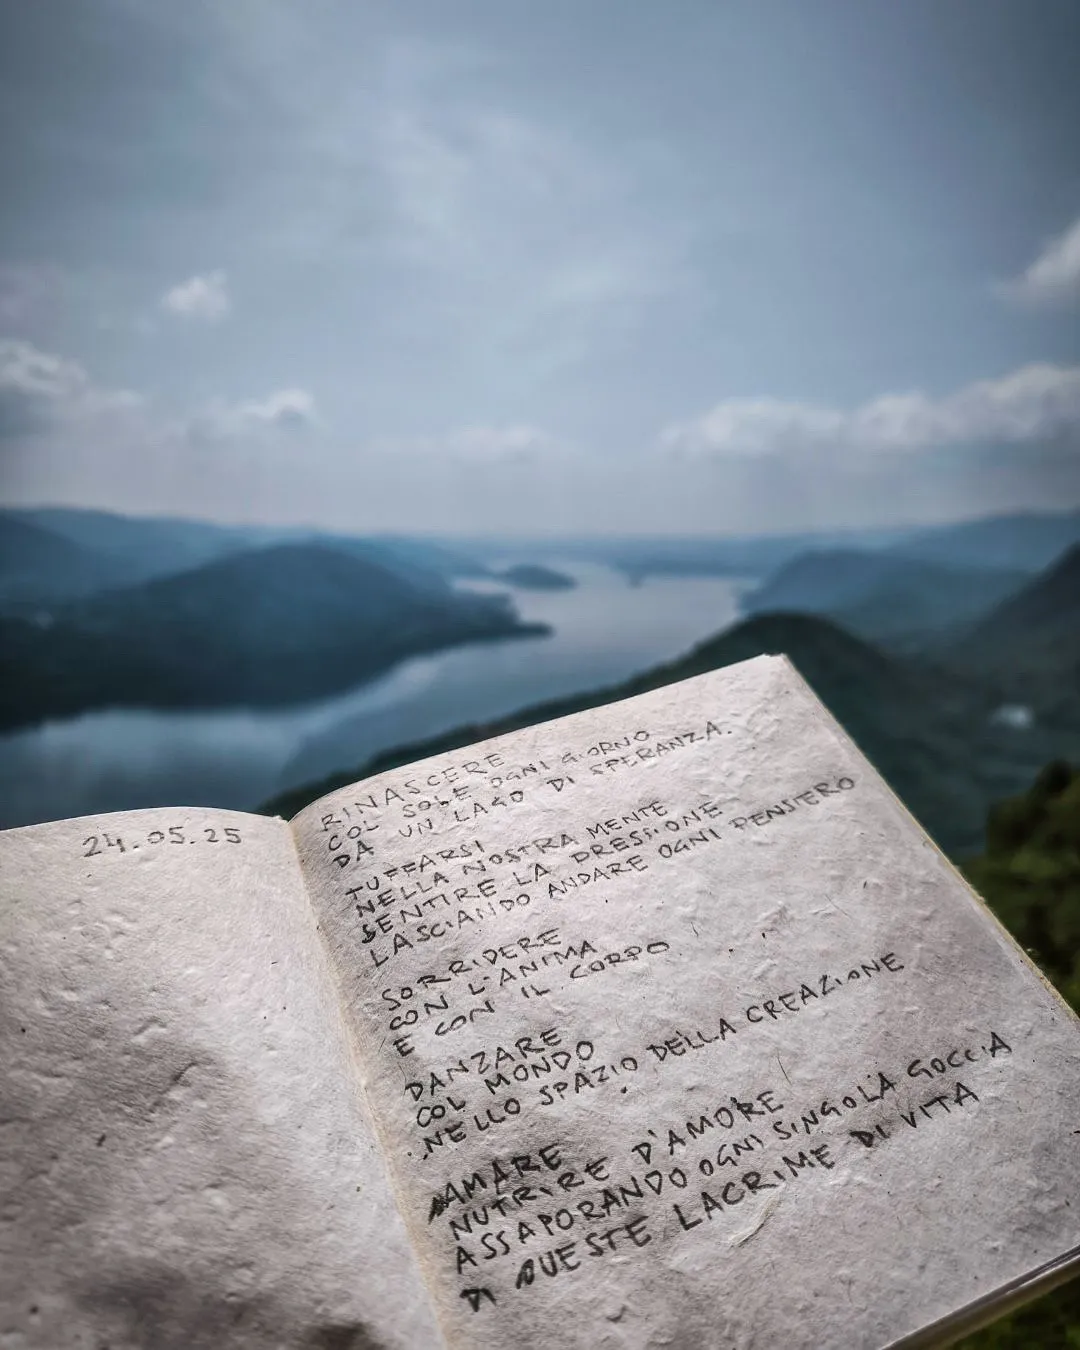 24.05.25
RINASCERE
COL SOLE OGNI GIORNO
DA UN LAGO DI SPERANZA.
TUFFARSI
NELLA NOSTRA MENTE
SENTIRE LA PRESSIONE
LASCIANDO ANDARE OGNI PENSIERO
SORRIDERE
CON L'ANIMA
E CON IL CORPO
DANZARE
COL MONDO
NELLO SPAZIO DELLA CREAZIONE
AMARE
NUTRIRE D'AMORE
ASSAPORANDO OGNI SINGOLA GOCCIA
DI QUESTE LACRIME DI VITA